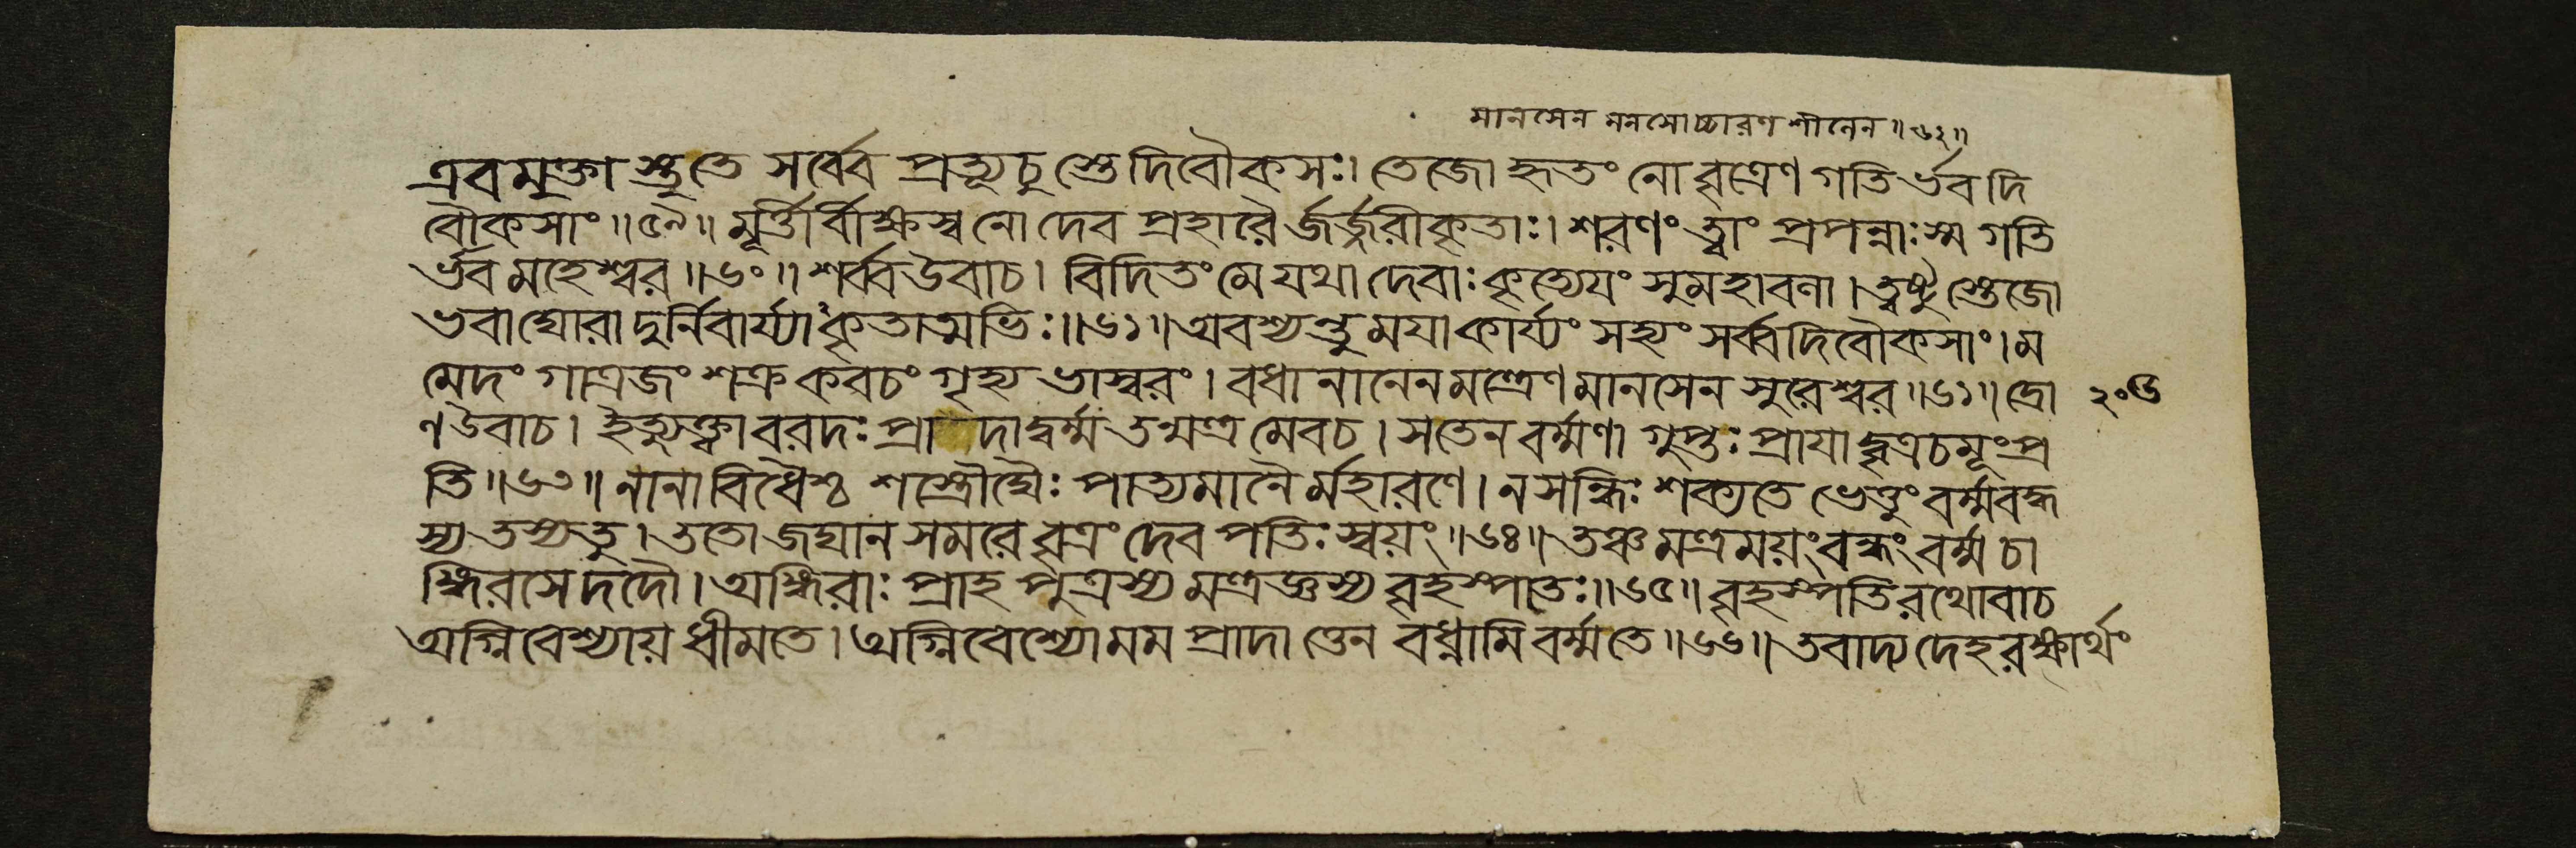 মানসেন মনসোচ্চারণ শীনেন॥৬২॥
এবমুক্তা স্তুতে সর্ব্বে প্রত্যূচু স্তেদিবৌকসঃ। তেজো হৃতং নো বৃত্রেণ গতি র্ভব দি
বৌকসাং॥৫৯॥ মূর্ত্তীর্বীক্ষস্ব নো দেব প্রহারৈ র্জর্জ্জরীকৃতাঃ। শরণং ত্বাং প্রপন্নাঃ স্ম গতি
র্ভব মহেশ্বর॥৬০॥ শর্ব্ব উবাচ। বিদিতং মে যথা দেবাঃ কৃত্যেয়ং সুমহাবলা। ত্বষ্টুস্তেজো
ভবাঘোরা দুর্নিবার্য্যাঽকৃতাত্মভিঃ॥৬১॥ অবশ্যন্তু ময়া কার্য্যং সহ্যং সর্ব্বদিবৌকসাং। ম
মেদং গাত্রজং শক্র কবচং গৃহ্য ভাস্বরং। বধানানেন মন্ত্রেণ মানসেন সুরেশ্বর॥৬১॥ দ্রো ২০৬
ণ উবাচ। ইত্যুক্ত্বা বরদঃ প্রাদাদ্বর্ম্ম তন্মন্ত্র মেবচ। স তেন বর্ম্মণা গুপ্তঃ প্রায়াদ্বৃত্রচমূং প্র
তি॥৬৩॥ নানাবিধৈশ্চ শস্ত্রৌঘৈঃ পাত্যমানৈ র্মহারণে। ন সন্ধিঃ শক্যতে ভেত্তুং বর্ম্মবন্ধ
স্য তস্য তু। ততো জঘান সমরে বৃত্রং দেব পতিঃ স্বয়ং॥৬৪॥ তঞ্চ মন্ত্রময়ং বন্ধং বর্ম্ম চা
ঙ্গিরসে দদৌ। অঙ্গিরাঃ প্রাহ পুত্রস্য মন্ত্রজ্ঞস্য বৃহস্পতেঃ॥৬৫॥ বৃহস্পতিরথোবাচ
অগ্নিবেশ্যায় ধীমতে। অগ্নিবেশ্যো মম প্রাদা ত্তেন বধ্নামি বর্ম্ম তে॥৬৬॥ তবাদ্য দেহরক্ষার্থং